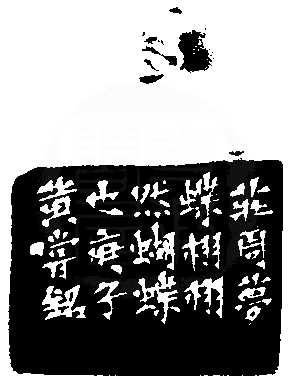 莊周夢
蝶栩栩
然蝴蝶
也庚子
黄嘗銘